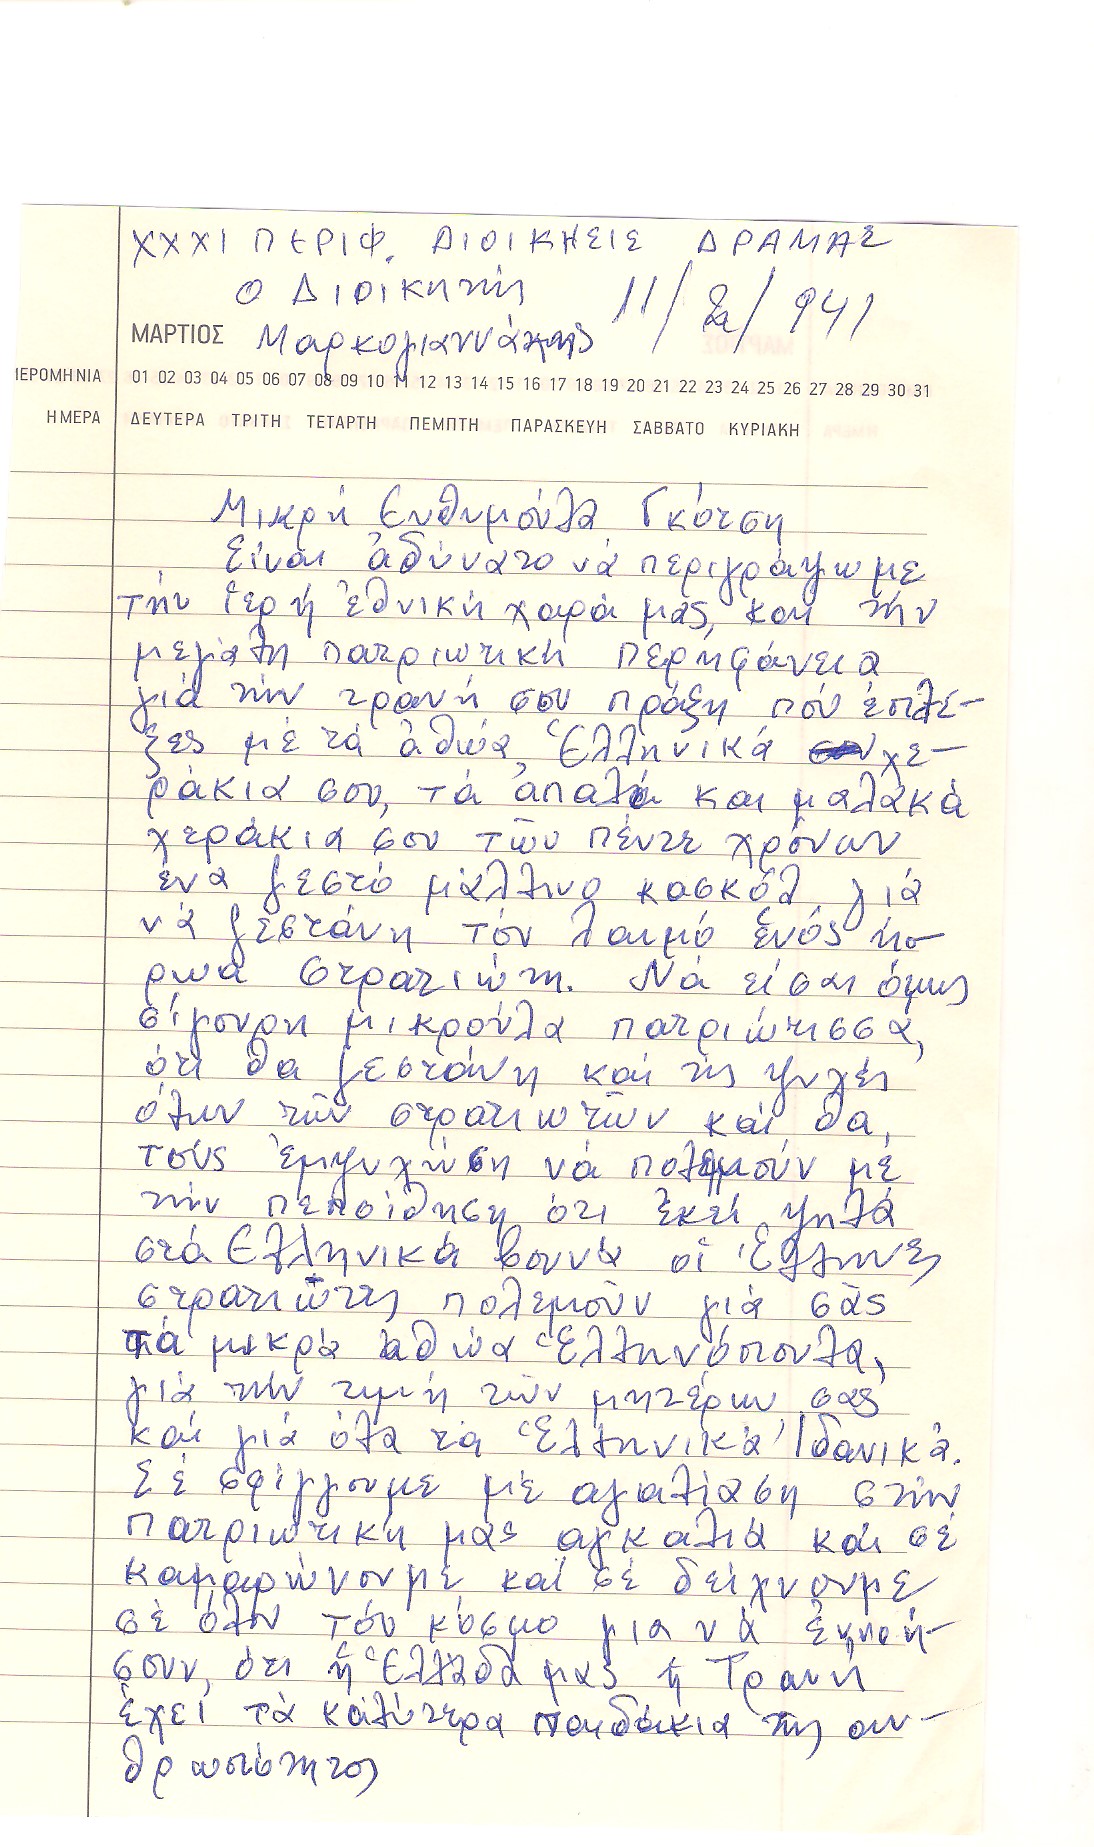 ΧΧΧΙ ΠΕΡΙΦ. ΔΙΟΙΚΗΣΙΣ ΔΡΑΜΑΣ
Ο Διοικητής 11/2/941
ΜΑΡΤΙΟΣ Μαρκογιαννάκης
ΙΕΡΟΜΗΝΙΑ 01 02 03 04 05 06 07 08 09 10 11 12 13 14 15 16 17 18 19 20 21 22 23 24 25 26 27 28 29 30 31
ΗΜΕΡΑ ΔΕΥΤΕΡΑ ΤΡΙΤΗ ΤΕΤΑΡΤΗ ΠΕΜΠΤΗ ΠΑΡΑΣΚΕΥΗ ΣΑΒΒΑΤΟ ΚΥΡΙΑΚΗ
Μικρή Ευθυμούλα Γκότση
Είναι ἀδύνατο νά περιγράψωμε
τήν ἱερή ἐθνική χαρά μας, και τήν
μεγάλη πατριωτική περηφάνεια
γιά τήν τρανή σου πράξη πού έπλε-
ξες μέ τά ἀθώα Ἑλληνικά χε-
ράκια σου, τά ἁπαλά και μαλακά
χεράκια σου τῶν πέντε χρόνων
ενα ζεστό μάλλινο κασκόλ γιά
νά ζεστάνη τόν λαιμό ἑνός ἥ-
ρωα στρατιώτη. Νά είσαι όμως
σίγουρη μικρούλα πατριώτισσα,
ότι θα ζεστάνη καί τίς ψυχές
όλων τῶν στρατιωτῶν καί θα
τούς ἐμψυχώση νά πολεμούν μέ
τήν πεποίθηση ότι ἐκεί ψηλά
στά Ελληνικά βουνά οἱ Ἕλληνες
στρατιῶτες πολεμοῦν γιά σᾶς
τά μικρά αθώα Ἑλληνόπουλα,
γιά τήν τιμή τῶν μητέρων σας
καί γιά όλα τά Ἑλληνικά Ἰδανικά.
Σέ σφίγγουμε μέ αγαλίαση στήν
πατριωτική μας αγκαλιά καί σέ
καμαρώνουμε καί σέ δείχνουμε
σέ όλον τόν κόσμο για νά ἐννοή-
σουν, ότι ἡ Ἑλλάδα μας ἡ Τρανή
ἔχει τά καλύτερα παιδάκια της αν-
θρωπότητος